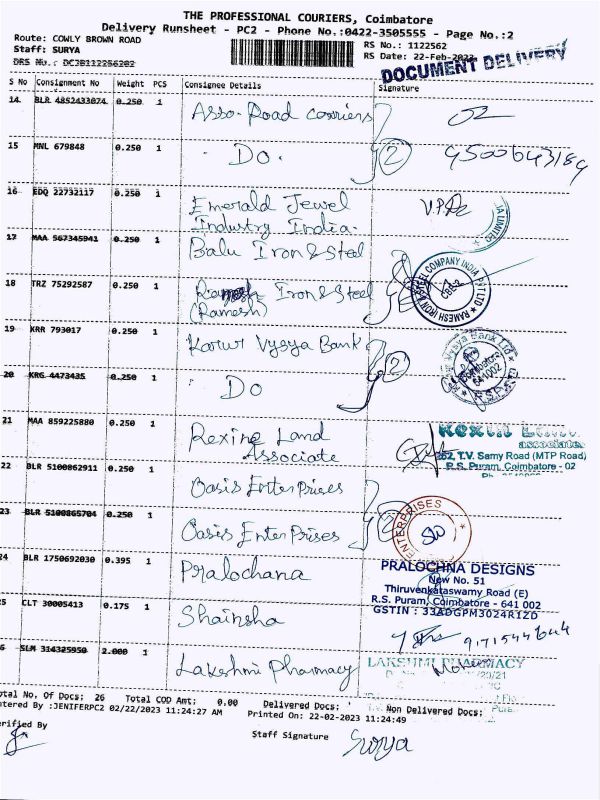 THE PROFESSIONAL COURIERS, Coimbatore
Delivery Runsheet - PC2 - Phone No.:0422-3505555 - Page No.:2
Route: COWLY BROWN ROAD
RS No.: 1122562
Staff: SURYA
RS Date: 22-Feb-2023
DRS No.: DCJB112256202
DOCUMENT DELIVERY
S No Consignment No Weight PCS Consignee Details Signature
14 BLR 4852433074 0.250 1 Asso. Road couriers
15 MNL 679848 0.250 1 Do. 2 9500643189
16 EDQ 22732117 0.250 1 Emerald Jewel
Industry India.
17 MAA 567345941 0.250 1 Balu Iron & Steel
18 TRZ 75292587 0.250 1 Iron & Steel
(Ramesh)
RAMESH IRON & STEEL COMPANY INDIA PVT LTD
CBE-2
19 KRR 793017 0.250 1 Karur Vysya Bank
20 KRG 4473435 0.250 1 Do 2
Vysya Bank Ltd
Coimbatore
641002
21 MAA 859225880 0.250 1 Rexine Land
Associate
associate
252, T.V. Samy Road (MTP Road)
R.S. Puram, Coimbatore - 02
22 BLR 5100862911 0.250 1 Oasis Enterprises
23 BLR 5100865704 0.250 1 Oasis Enterprises
ENTERPRISES
24 BLR 1750692030 0.395 1 Pralochana
PRALOCHNA DESIGNS
New No. 51
Thiruvenkataswamy Road (E)
R.S. Puram, Coimbatore - 641 002
GSTIN : 33ADGPM3024R1ZD
25 CLT 30005413 0.175 1 Shainsha
26 SLM 314325950 2.000 1 Lakeshmi Pharmacy
LAKSHMI PHARMACY
Total No. Of Docs: 26 Total COD Amt: 0.00 Delivered Docs: Non Delivered Docs:
Entered By :JENIFERPC2 02/22/2023 11:24:27 AM Printed On: 22-02-2023 11:24:49
Verified By
Staff Signature Surya